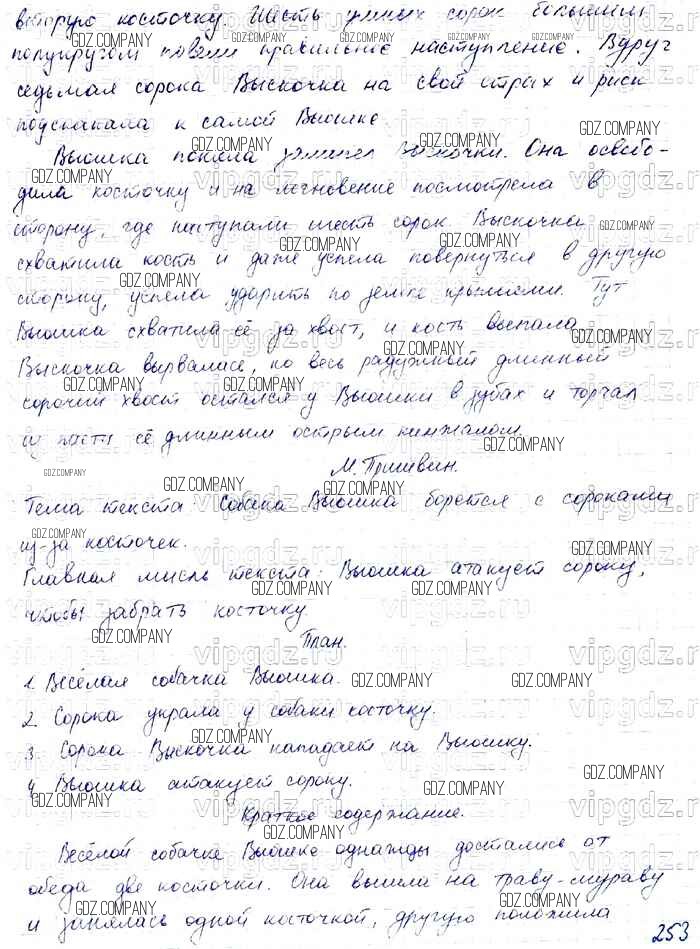 вторую косточку. Шесть умных сорок большим
полукругом повели правильное наступление. Вдруг
седьмая сорока Выскочка на свой страх и риск
подскакала к самой Вьюшке
Вьюшка поняла замысел Выскочки. Она освобо-
дила косточку и на мгновение посмотрела в
сторону, где наступали шесть сорок. Выскочка
схватила кость и даже успела повернуться в другую
сторону, успела ударить по земле крыльями. Тут
Вьюшка схватила её за хвост, и кость выпала
Выскочка вырвалась, но весь радужный длинный
сорочий хвост остался у Вьюшки в зубах и торчал
из пасти её длинным острым кинжалом.
М. Пришвин.
Тема текста: Собака Вьюшка борется с сороками
из-за косточек.
Главная мысль текста: Вьюшка атакует сороку,
чтобы забрать косточку
План.
1. Весёлая собачка Вьюшка.
2. Сорока украла у собаки косточку.
3. Сорока Выскочка нападает на Вьюшку.
4. Вьюшка атакует сороку.
Краткое содержание.
Весёлой собачке Вьюшке однажды достались от
обеда две косточки. Она вышла на траву-мураву
и занялась одной косточкой, другую положила
253
GDZ.COMPANY
vipgdz.ru